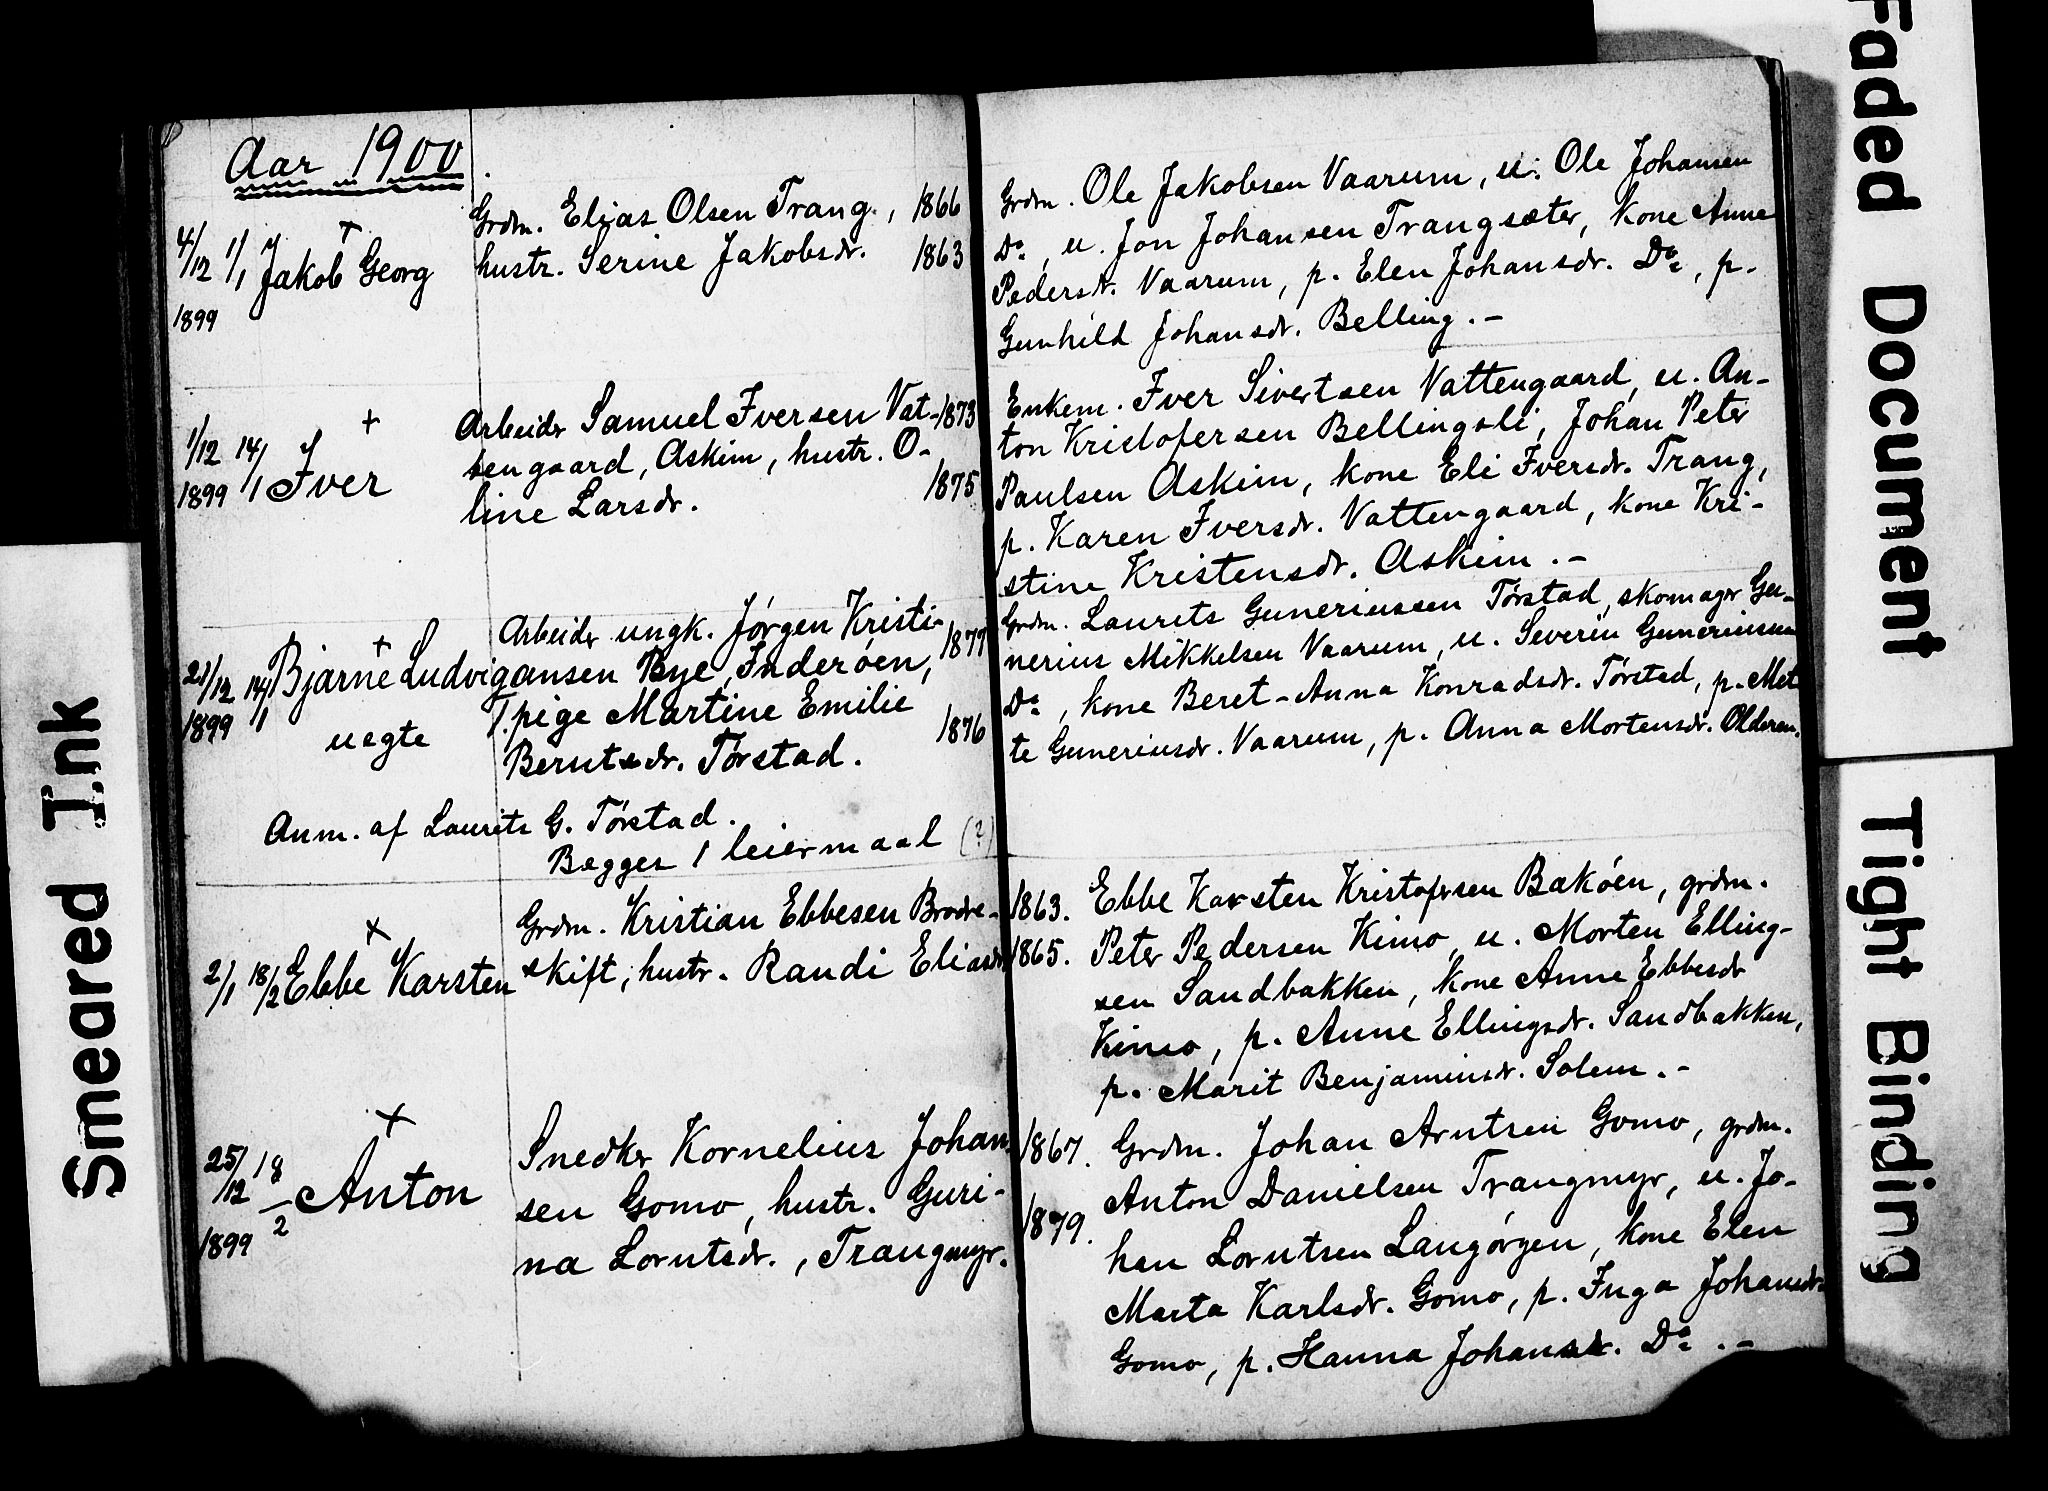 Aar 1900
4/12 1/1 Jakob Georg
1899
Grdm. Elias Olsen Trang, 1866
hustr. Serine Jakobsdr. 1863
Grdm. Ole Jakobsen Vaarum, u. Ole Johansen
Do, u. Jon Johansen Trangsæter, kone Anne
Pedersdr. Vaarum, p. Elen Johansdr. Do, p.
Gunhild Johansdr. Belling.-
1/12 14/1 Iver
1899
Arbeider Samuel Iversen Vat- 1873
tengaard, Askim, hustr. O-
line Larsdr. 1875
Enkem. Iver Sivertsen Vattengaard, u. An-
ton Kristofersen Bellingsli, Johan Peter
Paulsen Askim, kone Eli Iversdr. Trang,
p. Karen Iversdr. Vattengaard, kone Kri-
stine Kristensdr. Askim.-
21/12 14/1 Bjarne Ludvig
1899 uegte
Arbeider ungk. Jørgen Kristi- 1877
ansen Bye, Inderøen,
T. pige Martine Emilie
Berntsdr. Tørstad. 1876
Anm. af Laurits G. Tørstad.
Begges 1 leiermaal (?)
Grdm. Laurits Guneriussen Tørstad, skomager Gu-
nerius Mikkelsen Vaarum, u. Severin Guneriussen
Do, kone Beret-Anna Konradsdr. Tørstad, p. Met-
te Guneriusdr. Vaarum, p. Anna Mortensdr. Olderen.
2/1 18/2 Ebbe Karsten
Grdm. Kristian Ebbesen Brode-
skift, hustr. Randi Eliasdr
1863. Ebbe Karsten Kristofersen Bakøen, grdm.
1865. Peter Pedersen Kimo, u. Morten Elling-
sen Sandbakken, kone Anne Ebbesdr
Kimo, p. Anne Ellingsdr. Sandbakken,
p. Marit Benjaminsdr. Solem.-
25/12 18/2 Anton
1899
Snedker Kornelius Johan
sen Gomo, hustr. Guri-
na Lorntsdr., Trangmyr.
1867. Grdm. Johan Arntsen Gomo, grdm.
Anton Danielsen Trangmyr, u. Jo-
1879. han Lorntsen Langørgen, kone Elen
Marta Karlsdr. Gomo, p. Inga Johansdr.
Gomo, p. Hanna Johansdr. Do.-
Smeared Ink
Faded Document
Tight Binding